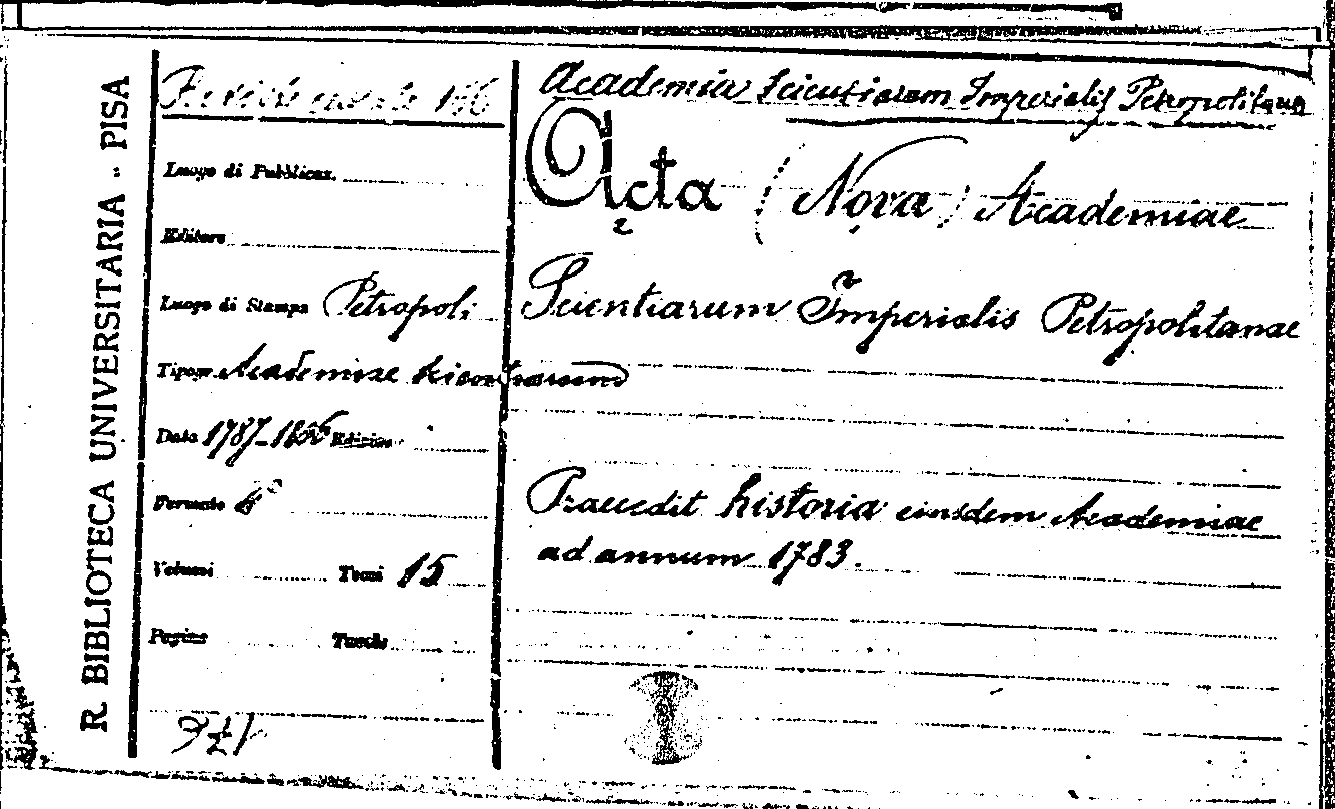 R. BIBLIOTECA UNIVERSITARIA - PISA
Academia Scientiarum Imperialis Petropolitana
Luogo di Pubblicaz.
Acta (Nova) Academiae
Editore
Luogo di Stampa Petropoli
Scientiarum Imperialis Petropolitanae
Tipogr. Academiae Scientiarum
Data 1787- Edizione
Formato 4°
Praecedit historia eiusdem Academiae
ad annum 1783.
Volumi Tomi 15
Pagine Tavole